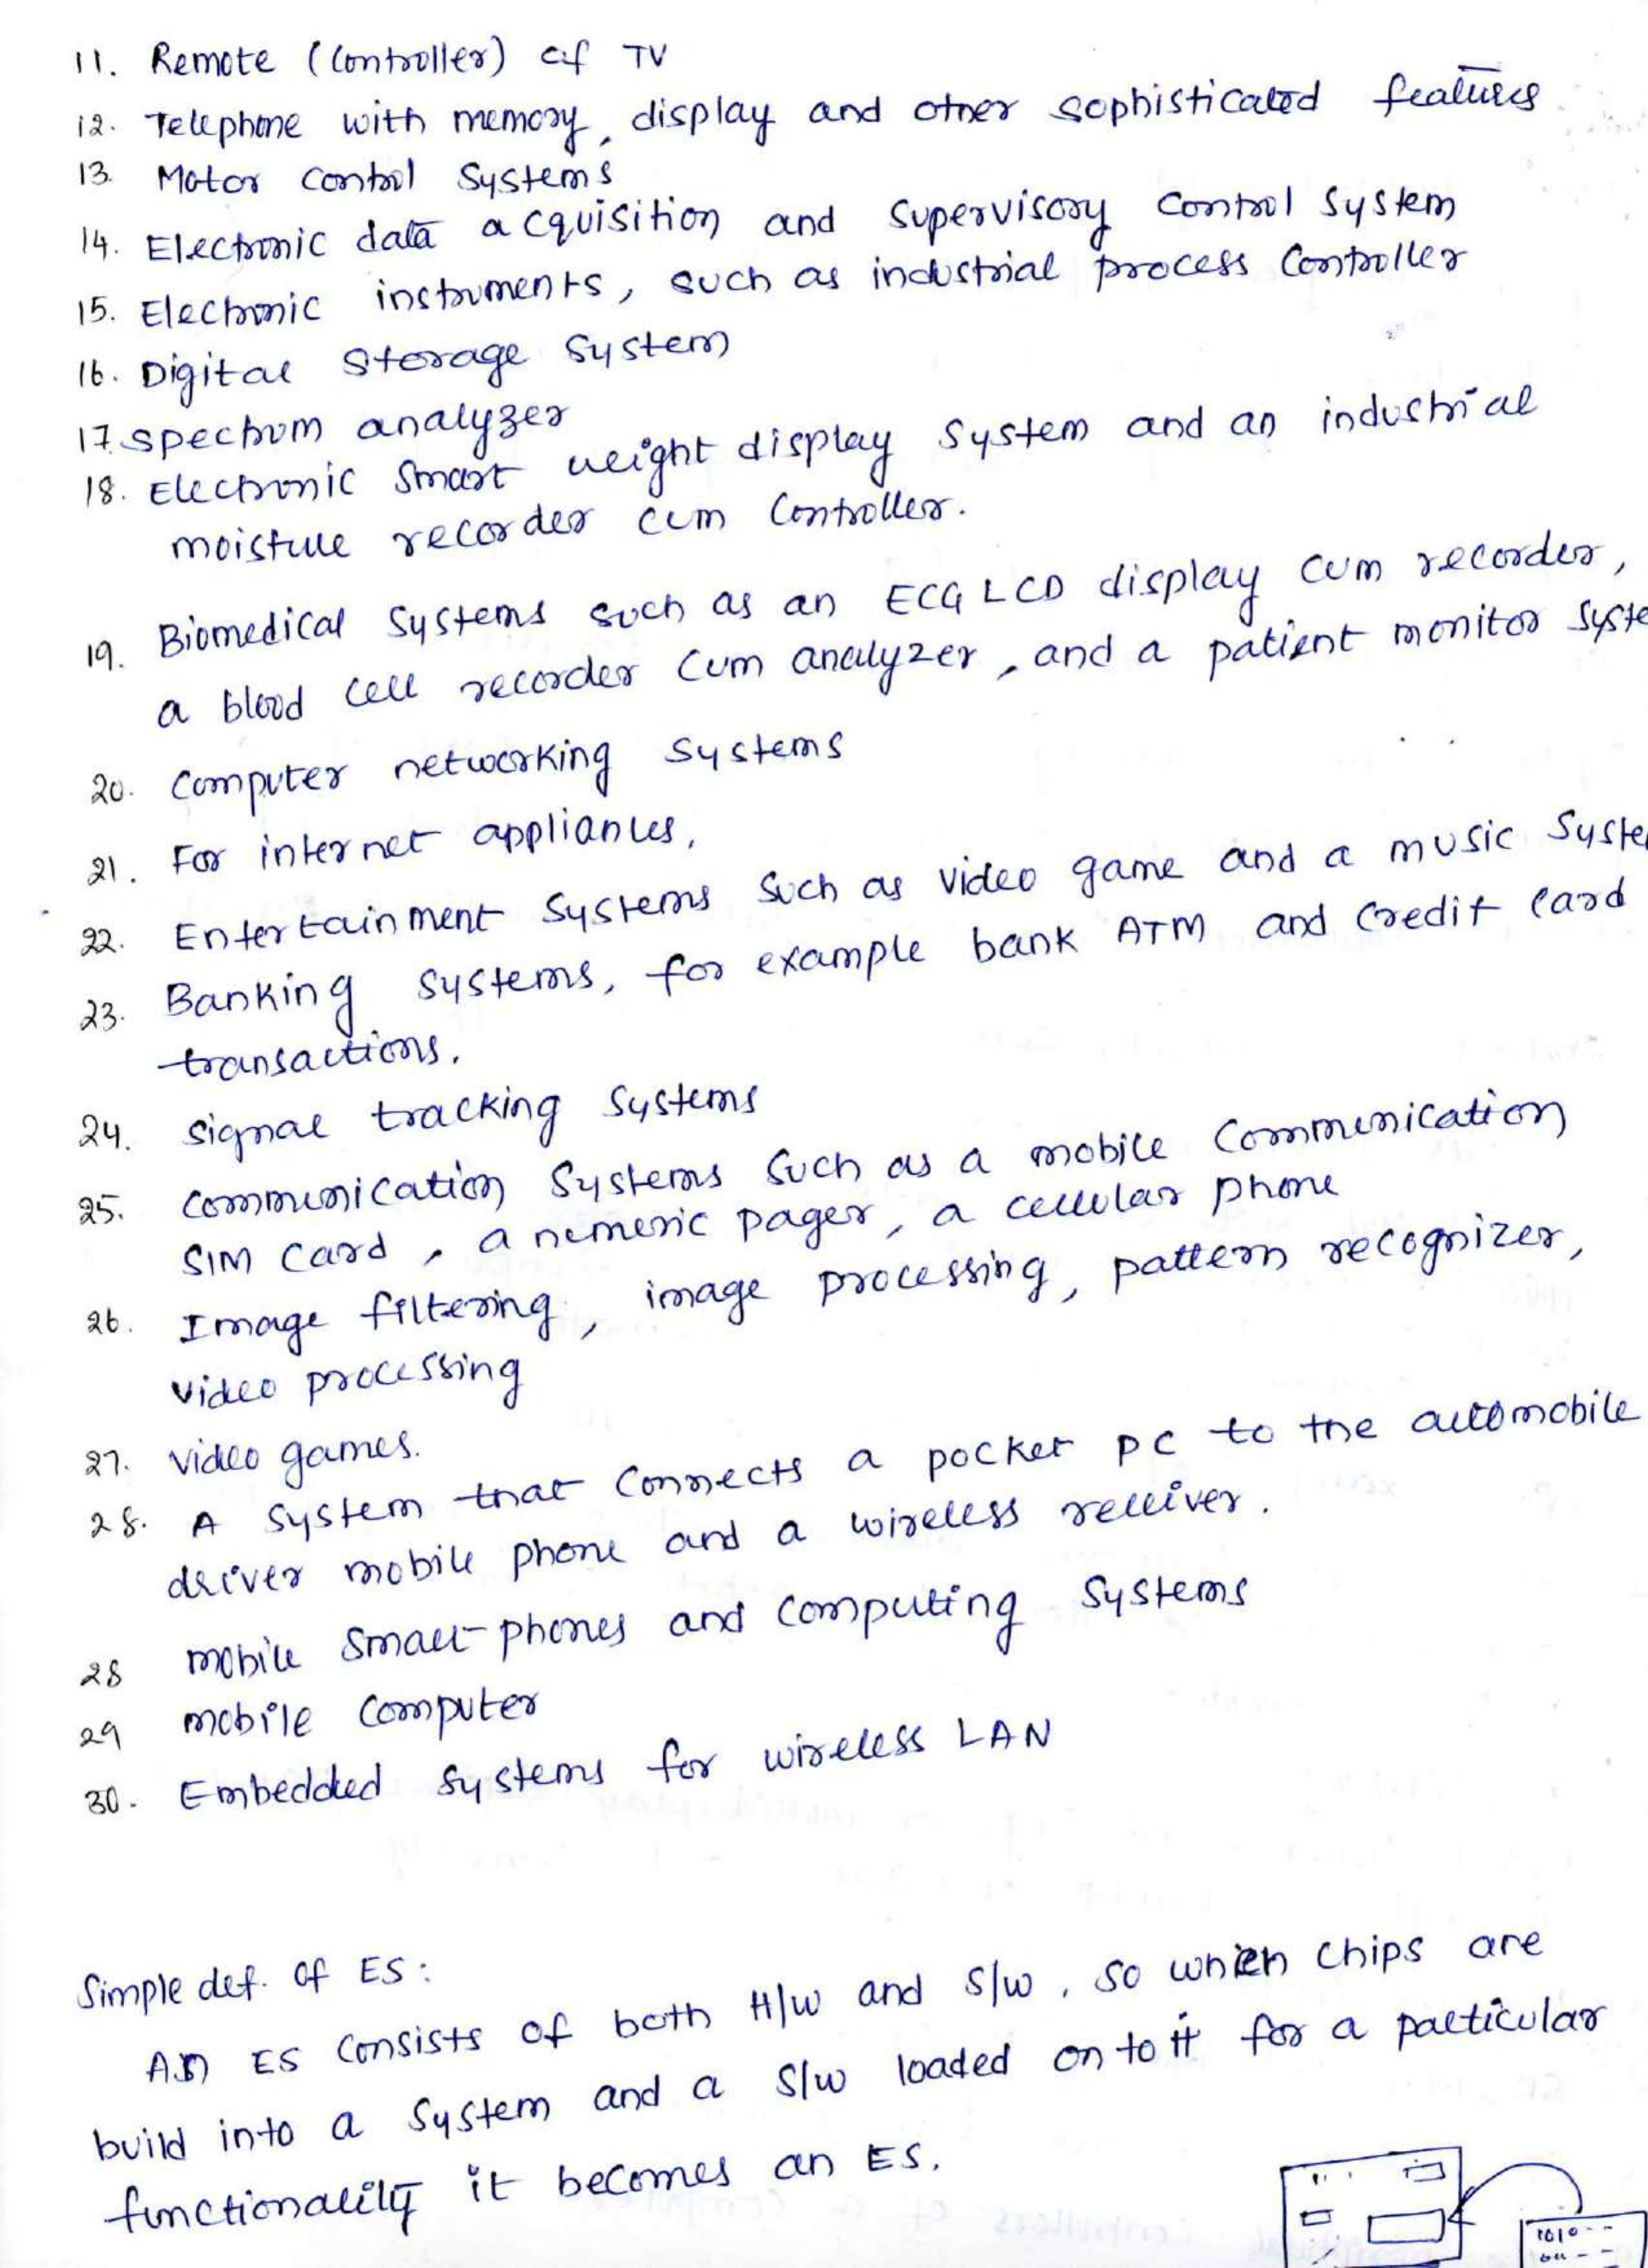 11. Remote (Controller) of TV
12. Telephone with memory, display and other sophisticated features
13. Motor control Systems
14. Electronic data acquisition and Supervisory Control System
15. Electronic instruments, such as industrial process Controller
16. Digital Storage System
17. Spectrum analyzer
18. Electronic Smart weight display System and an industrial
moisture recorder cum Controller.
19. Biomedical Systems such as an ECG LCD display cum recorder,
a blood cell recorder cum analyzer, and a patient monitor Syste
20. Computer networking Systems
21. For internet appliances,
22. Entertainment Systems Such as video game and a music Syste
23. Banking Systems, for example bank ATM and Credit Card
transactions.
24. Signal tracking Systems
25. Communication Systems Such as a mobile Communication
SIM Card, a numeric pager, a cellular phone
26. Image filtering, image processing, pattern recognizer,
video processing
27. video games.
28. A System that Connects a pocket PC to the automobile
driver mobile phone and a wireless receiver.
28 mobile Smart-phones and Computing Systems
29 mobile Computer
30. Embedded Systems for wireless LAN
Simple def. of ES:
An ES Consists of both H/w and S/w, So when Chips are
build into a System and a S/w loaded on to it for a particular
functionality it becomes an ES.
1010--